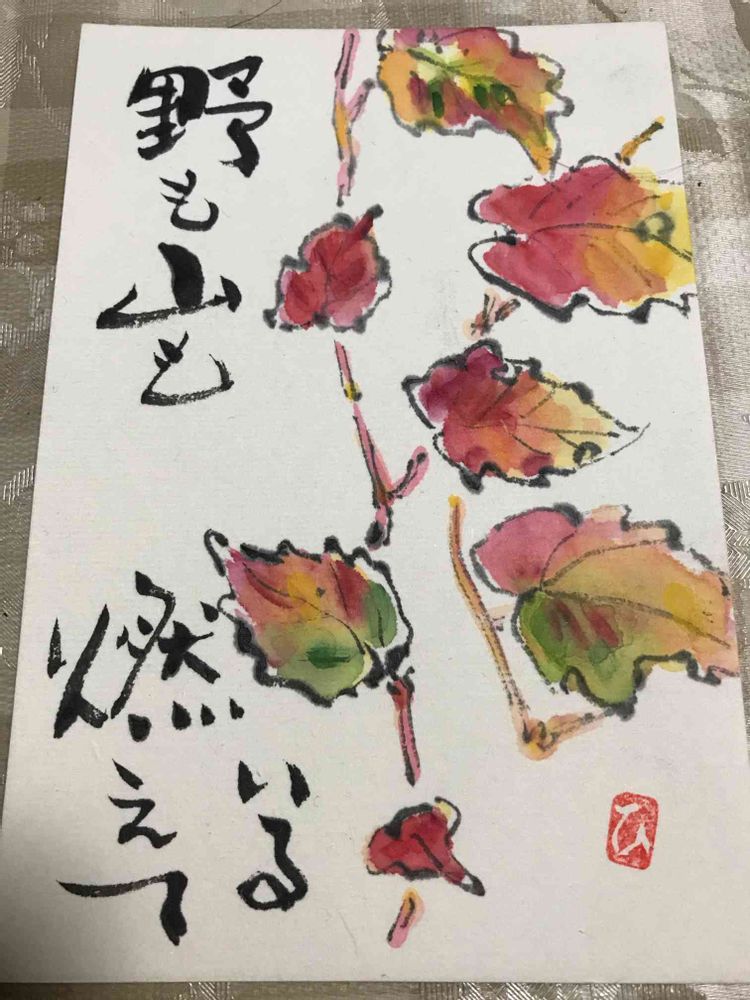 野も山も
燃えて
いる
ひ